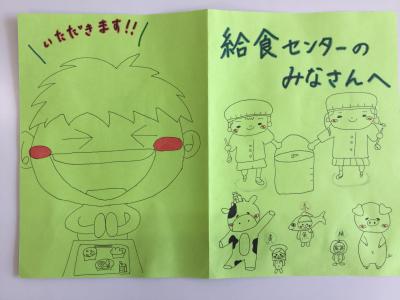 いただきます!!
給食センターの
みなさんへ